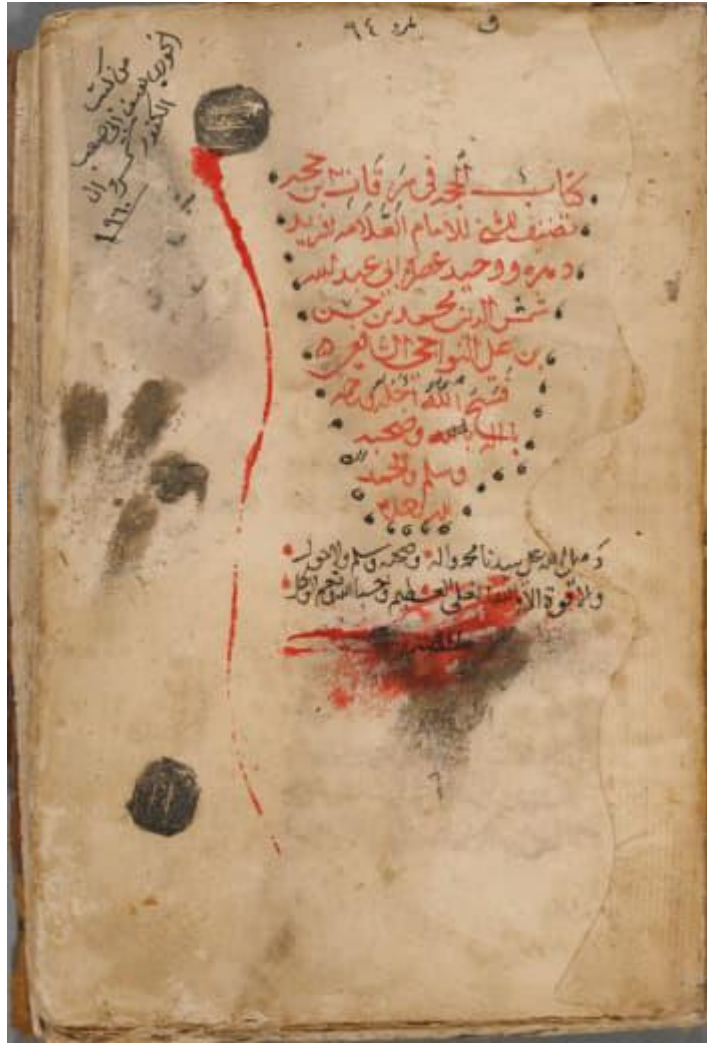 نمرة ٩٤
من كتب
الخوري يوسف ابي صعب
١٩٦٠
كتاب الحجه في سرقات بن حجه
تصنيف الشيخ للامام العلامه فريد
دهره ووحيد عصره ابي عبد الله
شمس الدين محمد بن حسن
بن علي النواجي الشافعي
فسح الله اجله
وصحبه
وسلم والحمد
لله
وصلى الله على سيدنا محمد واله وصحبه وسلم ولا حول
ولا قوة الا بالله العلي العظيم وحسبنا الله ونعم الوكيل